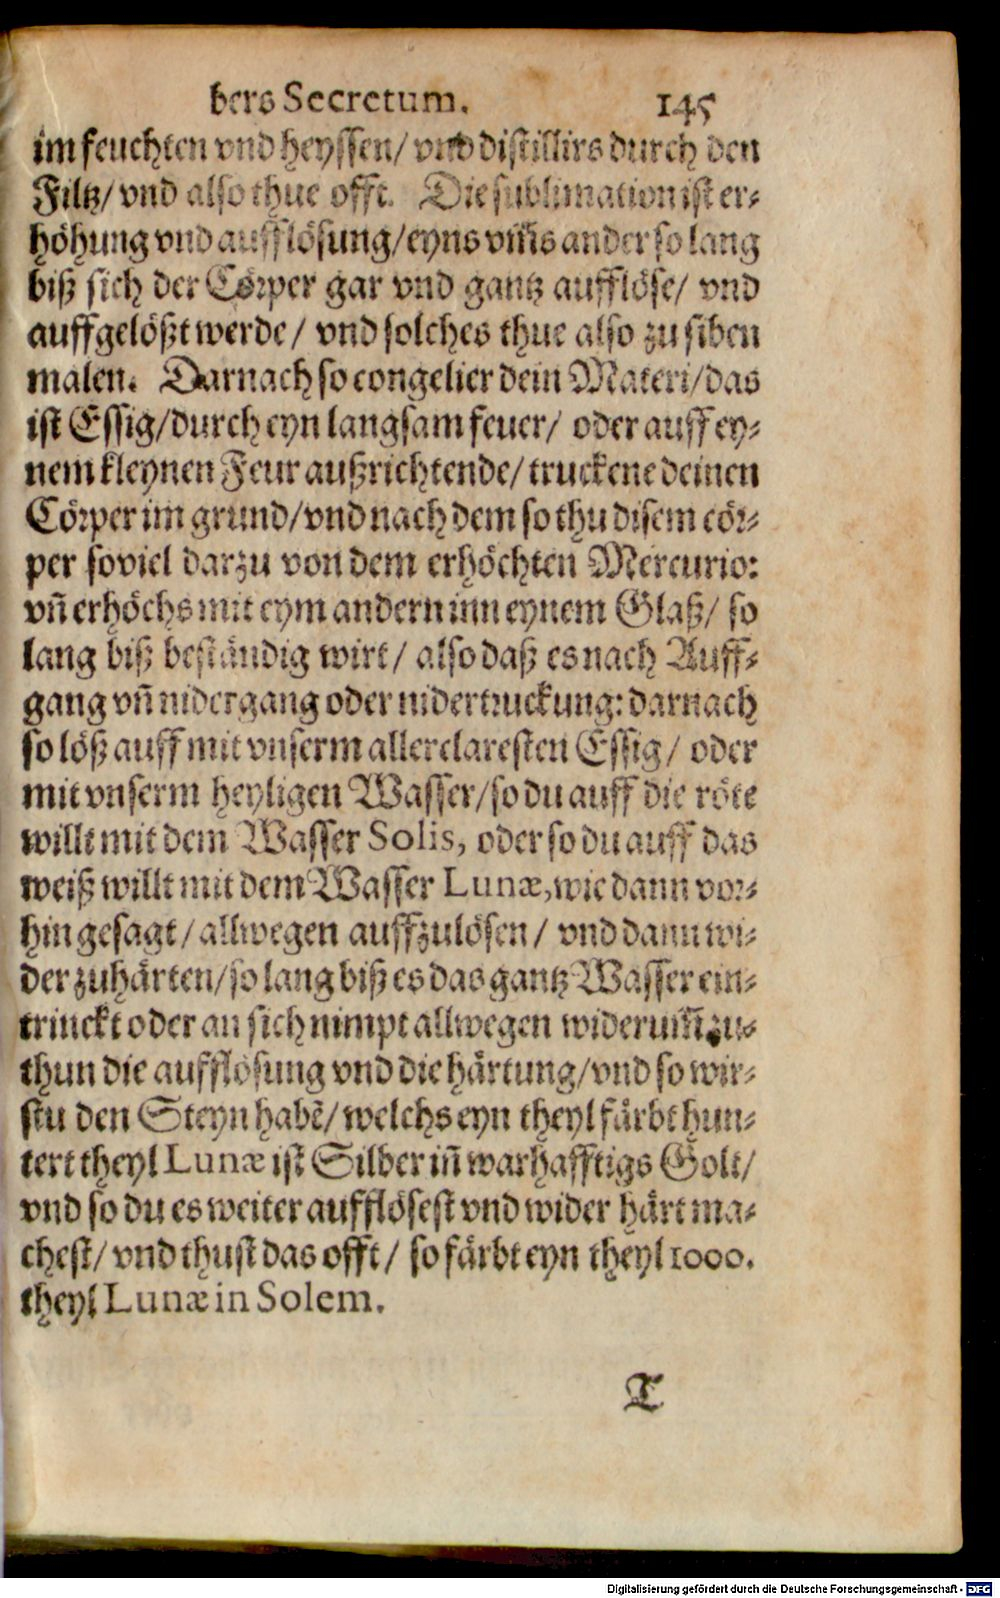 bers Secretum. 145
im feuchten vnd heyssen/ vnd distillirs durch den
Filtz/ vnd also thue offt. Die sublimation ist er⸗
höhung vnd aufflösung/ eyns vm̃s ander so lang
biß sich der Cörper gar vnd gantz aufflöse/ vnd
auffgelößt werde/ vnd solches thue also zu siben
malen. Darnach so congelier dein Materi/ das
ist Essig/ durch eyn langsam feuer/ oder auff ey⸗
nem kleynen Feur außrichtende/ truckene deinen
Cörper im grund/ vnd nach dem so thu disem cör⸗
per soviel darzu von dem erhöchten Mercurio:
vñ erhöchs mit eym andern inn eynem Glaß/ so
lang biß beständig wirt/ also daß es nach Auff⸗
gang vñ nidergang oder nidertruckung: darnach
so löß auff mit vnserm allerclaresten Essig/ oder
mit vnserm heyligen Wasser/ so du auff die röte
willt mit dem Wasser Solis, oder so du auff das
weiß willt mit dem Wasser Lunæ, wie dann vor⸗
hin gesagt/ allwegen auffzulösen/ vnd dann wi⸗
der zuhärten/ so lang biß es das gantz Wasser ein⸗
trinckt oder an sich nimpt allwegen widerum̃ zu⸗
thun die aufflösung vnd die härtung/ vnd so wir⸗
stu den Steyn habẽ/ welchs eyn theyl färbt hun⸗
tert theyl Lunæ ist Silber iñ warhafftigs Golt/
vnd so du es weiter aufflösest vnd wider härt ma⸗
chest/ vnd thust das offt/ so färbt eyn theyl 1000.
theyl Lunæ in Solem.
T
Digitalisierung gefördert durch die Deutsche Forschungsgemeinschaft - DFG